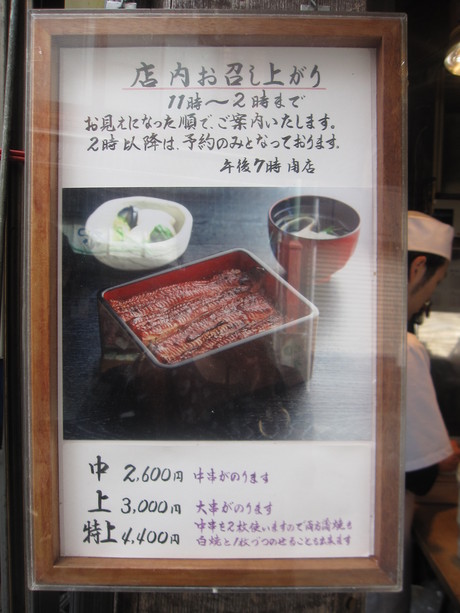 店内お召し上がり
11時〜2時まで
お見えになった順で、ご案内いたします。
2時以降は、予約のみとなっております。
午後7時閉店
中 2,600円 中串がのります
上 3,000円 大串がのります
特上 4,400円 中串を2枚使いますので両方蒲焼も
白焼と1枚づつのせることも出来ます